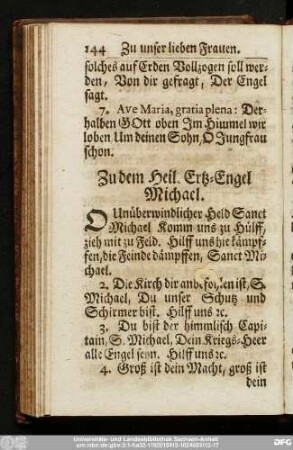 144 Zu unser lieben Frauen.
solches auf Erden Vollzogen soll wer-
den, Von dir gefragt, Der Engel
sagt.
7. Ave Maria, gratia plena: Der-
halben GOtt oben Im Himmel wir
loben Um deinen Sohn, O Jungfrau
schon.
Zu dem Heil. Ertz-Engel
Michael.
O Unüberwindlicher Held Sanct
Michael Komm uns zu Hülff,
zieh mit zu Feld. Hilff uns hie kämpf-
fen, die Feinde dämpffen, Sanct Mi-
chael.
2. Die Kirch dir anbefohlen ist, S.
Michael, Du unser Schutz und
Schirmer bist. Hilff uns ꝛc.
3. Du bist der himmlisch Capi-
tain, S. Michael, Dein Kriegs-Heer
alle Engel seyn. Hilff uns ꝛc.
4. Groß ist dein Macht, groß ist
dein
Universitäts- und Landesbibliothek Sachsen-Anhalt
DFG